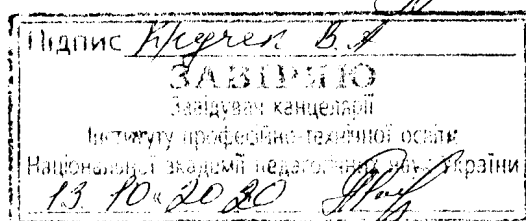 Підпис Кручек В.А
ЗАВІРЯЮ
Завідувач канцелярії
Інституту професійно-технічної освіти
Національної академії педагогічних наук України
13.10.2020